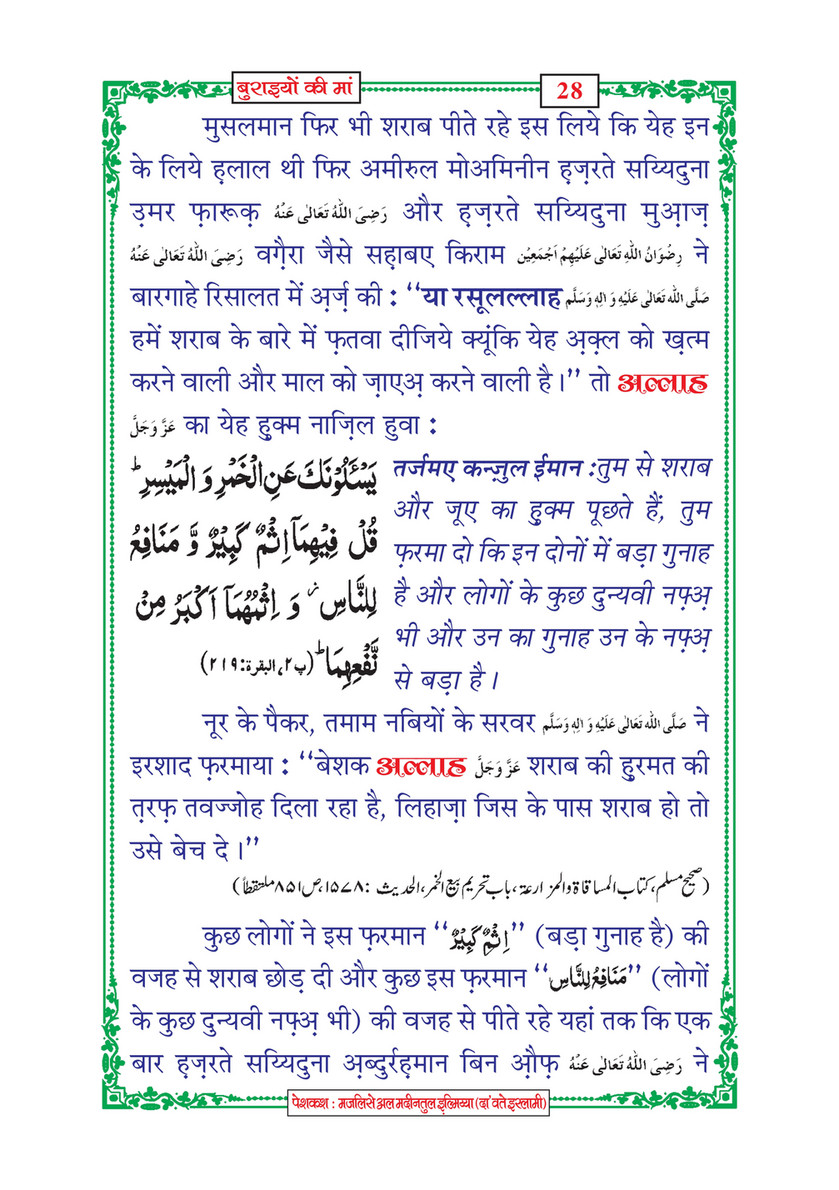 बुराइयों की मां
28
मुसलमान फिर भी शराब पीते रहे इस लिये कि येह इन
के लिये ह़लाल थी फिर अमीरुल मोअमिनीन ह़ज़रते सय्यिदुना
उ़मर फ़ारूक़ رَضِیَ اللّٰہُ تَعَالٰی عَنْہُ और ह़ज़रते सय्यिदुना मुअ़ाज़
رَضِیَ اللّٰہُ تَعَالٰی عَنْہُ वग़ैरा जैसे सह़ाबए किराम رِضْوَانُ اللّٰہِ تَعَالٰی عَلَیْہِمْ اَجْمَعِیْن ने
बारगाहे रिसालत में अ़र्ज़ की : ‘‘या रसूलल्लाह صَلَّی اللّٰہ تَعَالٰی عَلَیْہِ وَ اٰلِہٖ وَسَلَّم
हमें शराब के बारे में फ़तवा दीजिये क्यूंकि येह अ़क़्ल को ख़त्म
करने वाली और माल को ज़ाएअ़ करने वाली है।’’ तो अल्लाह
عَزَّ وَجَلَّ का येह हुक्म नाज़िल हुवा :
یَسْـَٔلُوْنَكَ عَنِ الْخَمْرِ وَ الْمَیْسِرِؕ
قُلْ فِیْهِمَاۤ اِثْمٌ كَبِیْرٌ وَّ مَنَافِعُ
لِلنَّاسِ٘ وَ اِثْمُهُمَاۤ اَكْبَرُ مِنْ
نَّفْعِهِمَاؕ (پ۲، البقرۃ:۲۱۹)
तर्जमए कन्ज़ुल ईमान :तुम से शराब
और जूए का हुक्म पूछते हैं, तुम
फ़रमा दो कि इन दोनों में बड़ा गुनाह
है और लोगों के कुछ दुन्यवी नफ़्अ़
भी और उन का गुनाह उन के नफ़्अ़
से बड़ा है।
नूर के पैकर, तमाम नबियों के सरवर صَلَّی اللّٰہ تَعَالٰی عَلَیْہِ وَ اٰلِہٖ وَسَلَّم ने
इरशाद फ़रमाया : ‘‘बेशक अल्लाह عَزَّ وَجَلَّ शराब की ह़ुरमत की
त़रफ़ तवज्जोह दिला रहा है, लिहाज़ा जिस के पास शराब हो तो
उसे बेच दे।’’
(صحیح مسلم، کتاب المساقاۃ والمزارعۃ، باب تحریم بیع الخمر، الحدیث :۱۵۷۸، ص۸۵۱ ملتقطاً)
कुछ लोगों ने इस फ़रमान ‘‘اِثْمٌ كَبِیْرٌ’’ (बड़ा गुनाह है) की
वजह से शराब छोड़ दी और कुछ इस फ़रमान ‘‘مَنَافِعُ لِلنَّاسِ’’ (लोगों
के कुछ दुन्यवी नफ़्अ़ भी) की वजह से पीते रहे यहां तक कि एक
बार ह़ज़रते सय्यिदुना अ़ब्दुर्रह़मान बिन औ़फ़ رَضِیَ اللّٰہُ تَعَالٰی عَنْہُ ने
पेशकश : मजलिसे अल मदीनतुल इ़ल्मिय्या (दा'वते इस्लामी)